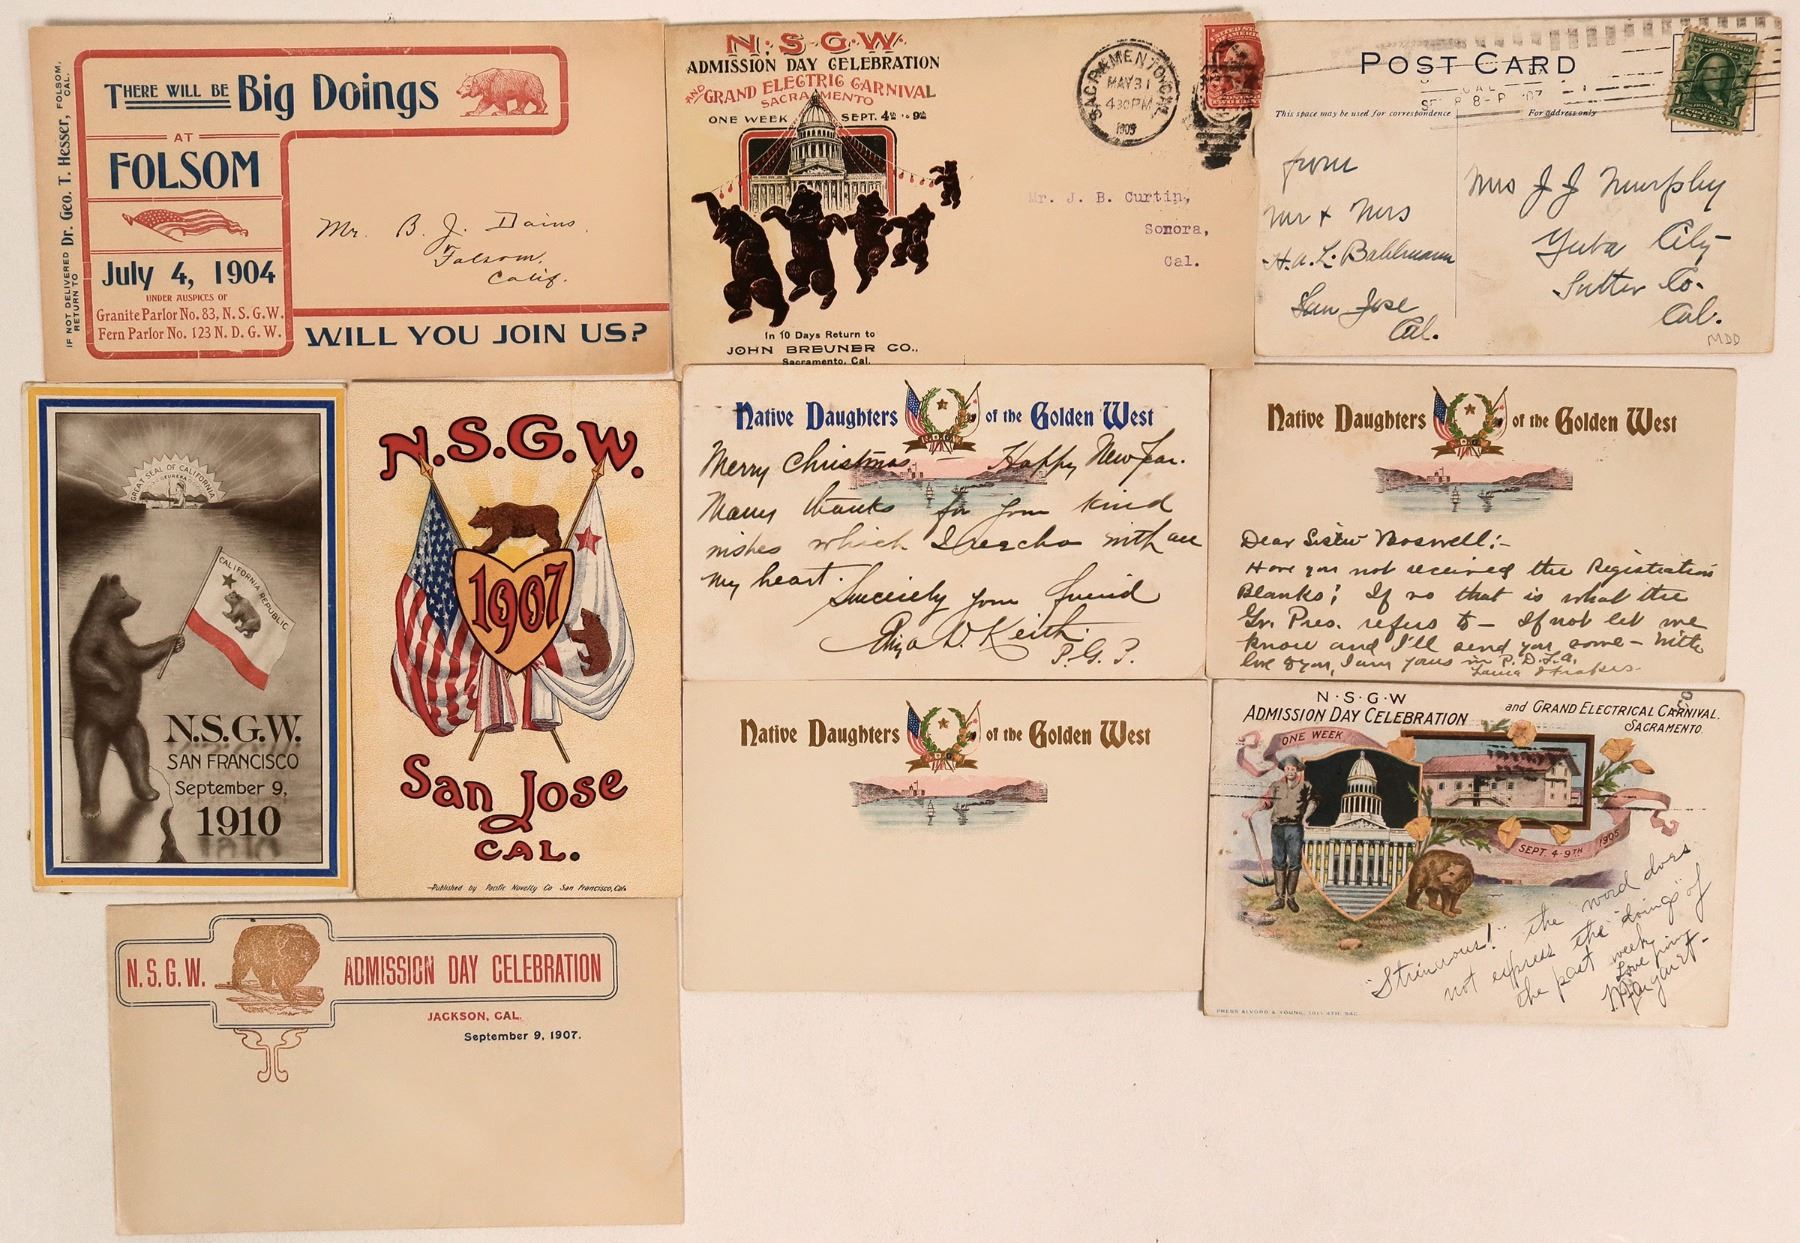 IF NOT DELIVERED Dr. Geo. T. Hesser, FOLSOM, CAL.
RETURN TO
THERE WILL BE Big Doings
AT
FOLSOM
July 4, 1904
UNDER AUSPICES OF
Granite Parlor No. 83, N. S. G. W.
Fern Parlor No. 123 N. D. G. W.
Mr. B. J. Dains.
Folsom.
Calif.
WILL YOU JOIN US?
N·S·G·W·
ADMISSION DAY CELEBRATION
AND GRAND ELECTRIC CARNIVAL
SACRAMENTO
ONE WEEK SEPT. 4th to 9th
SACRAMENTO, CAL.
MAY 31
4 30 PM
1905
Mr. J. B. Curtin,
Sonora,
Cal.
In 10 Days Return to
JOHN BREUNER CO.,
Sacramento, Cal.
POST CARD
This space may be used for correspondence
For address only
from
Mr & Mrs
H. A. L. Bahlmann
San Jose
Cal.
Mrs J J Murphy
Yuba City
Sutter Co.
Cal.
MDD
GREAT SEAL OF CALIFORNIA
EUREKA
CALIFORNIA REPUBLIC
N.S.G.W.
SAN FRANCISCO
September 9,
1910
N.S.G.W.
1907
San Jose
CAL.
Published by Pacific Novelty Co San Francisco, Cal.
Native Daughters of the Golden West
Merry Christmas Happy New Year.
Many thanks for your kind
wishes which I reecho with all
my heart.
Sincerely your friend
Eliza D. Keith.
P. G. P.
Native Daughters of the Golden West
Dear Sister Boswell:-
Have you not received the Registration
Blanks; If so that is what the
Gr. Pres. refers to - If not let me
know and I'll send you some - With
love to you, I am yours in P. D. F. A.
Native Daughters of the Golden West
N·S·G·W
ADMISSION DAY CELEBRATION and GRAND ELECTRICAL CARNIVAL.
SACRAMENTO.
ONE WEEK
SEPT. 4-9TH 1905
"Strenuous!" the word does
not express the "doings" of
the past week.
Love from
Margaret-
PRESS ALVORD & YOUNG, 1011 4TH, SAC.
N.S.G.W. ADMISSION DAY CELEBRATION
JACKSON, CAL.
September 9, 1907.